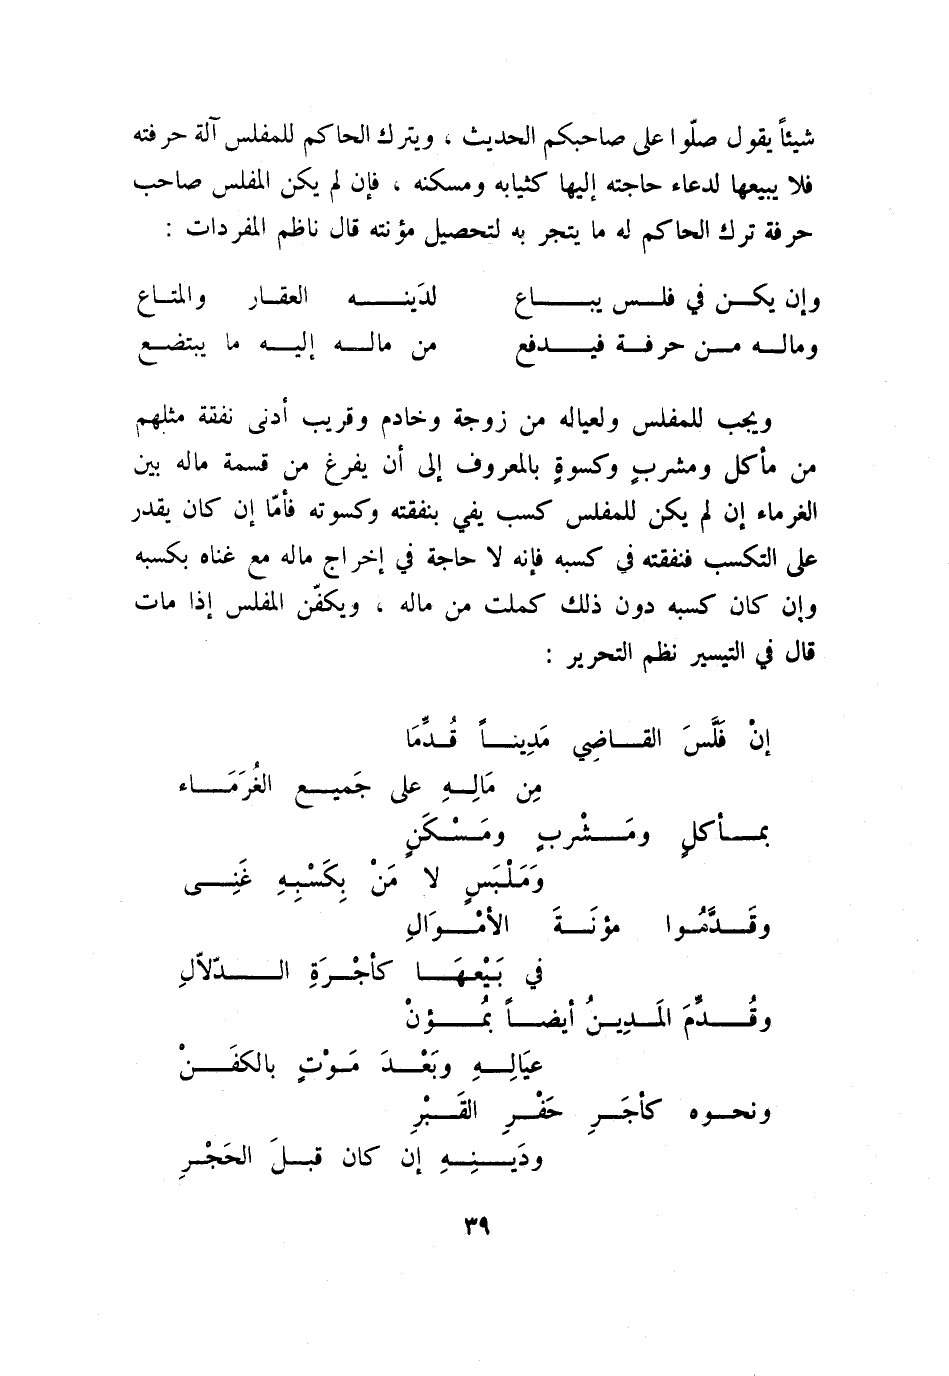 شيئاً يقول صلّوا على صاحبكم الحديث ، ويترك الحاكم للمفلس آلة حرفته
فلا يبيعها لدعاء حاجته إليها كثيابه ومسكنه ، فإن لم يكن المفلس صاحب
حرفة ترك الحاكم له ما يتجر به لتحصيل مؤنته قال ناظم المفردات :
وإن يكن في فلس يباع لدَينه العقار والمتاع
وماله من حرفة فيدفع من ماله إليه ما يبتضع
ويجب للمفلس ولعياله من زوجة وخادم وقريب أدنى نفقة مثلهم
من مأكل ومشربٍ وكسوةٍ بالمعروف إلى أن يفرغ من قسمة ماله بين
الغرماء إن لم يكن للمفلس كسب يفي بنفقته وكسوته فأمّا إن كان يقدر
على التكسب فنفقته في كسبه فإنه لا حاجة في إخراج ماله مع غناه بكسبه
وإن كان كسبه دون ذلك كملت من ماله ، ويكفّن المفلس إذا مات
قال في التيسير نظم التحرير :
إنْ فَلَّسَ القاضِي مَدِيناً قُدِّمَا
مِن مَالِهِ على جَميعِ الغُرَمَاء
بمأكلٍ ومَشْربٍ ومَسْكَنٍ
وَمَلْبَسٍ لا مَنْ بِكَسْبِهِ غَنِى
وقَدَّمُوا مؤنَةَ الأمْوَالِ
في بَيْعهَا كأجْرَةِ الدّلاّلِ
وقُدِّمَ المَدِينُ أيضاً بمُؤنْ
عيَالِهِ وبَعْدَ مَوْتٍ بالكفَنْ
ونحوه كأجَرِ حَفْرِ القَبْرِ
ودَينِهِ إن كان قبلَ الحَجْرِ
٣٩